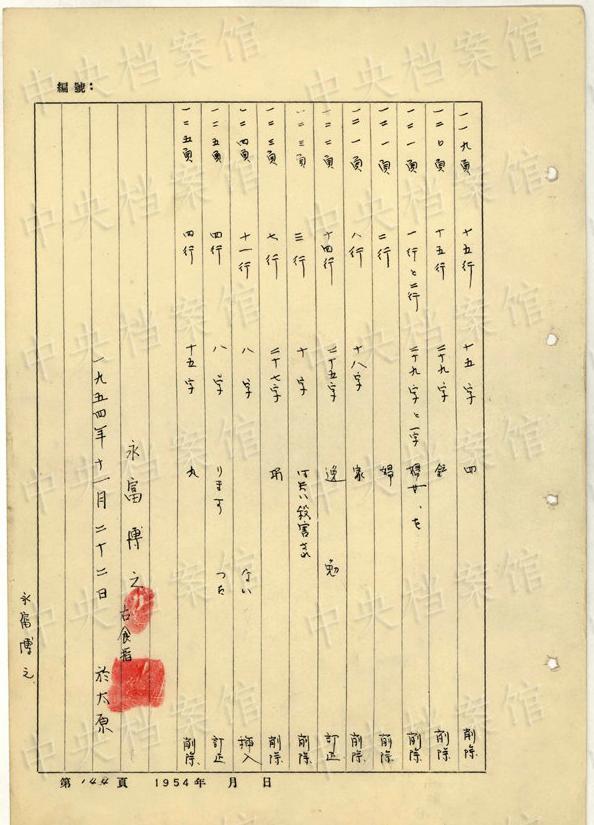 編號：
一一九頁 十五行 十五字 四 削除
一二〇頁 十五行 二十九字 削除
一二一頁 一行と二行 二十九字と一字 婦女、を 削除
一二一頁 二行 婦 削除
一二一頁 八行 十八字 家 削除
一二二頁 十四行 二十五字 逸 勉 訂正
一二三頁 三行 十字 殺害 削除
一二三頁 七行 二十七字 削除
一二四頁 十一行 八字 ない 挿入
一二五頁 四行 八字 ります つた 訂正
一二五頁 四行 十五字 九 削除
永富博之
右食指
一九五四年十一月二十二日 於太原
永富博之
第144頁 1954年 月 日
中央档案馆